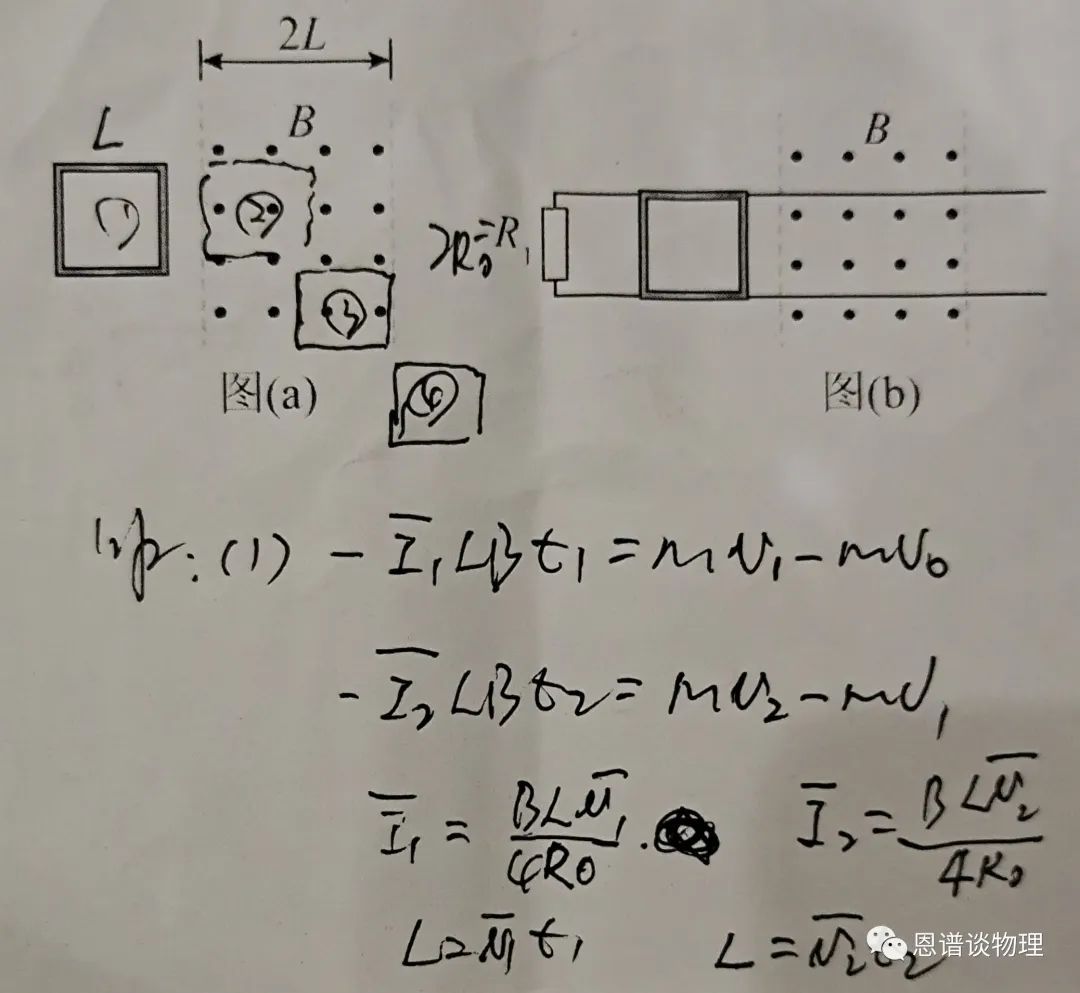 2L
L B B
① ②
2R₀=R₁
③
图(a) ④ 图(b)
解:(1) -Ī₁LBt₁=mv₁-mv₀
-Ī₂LBt₂=mv₂-mv₁
Ī₁=BLv̄₁/4R₀. Ī₂=BLv̄₂/4R₀
L=v̄₁t₁ L=v̄₂t₂
恩谱谈物理